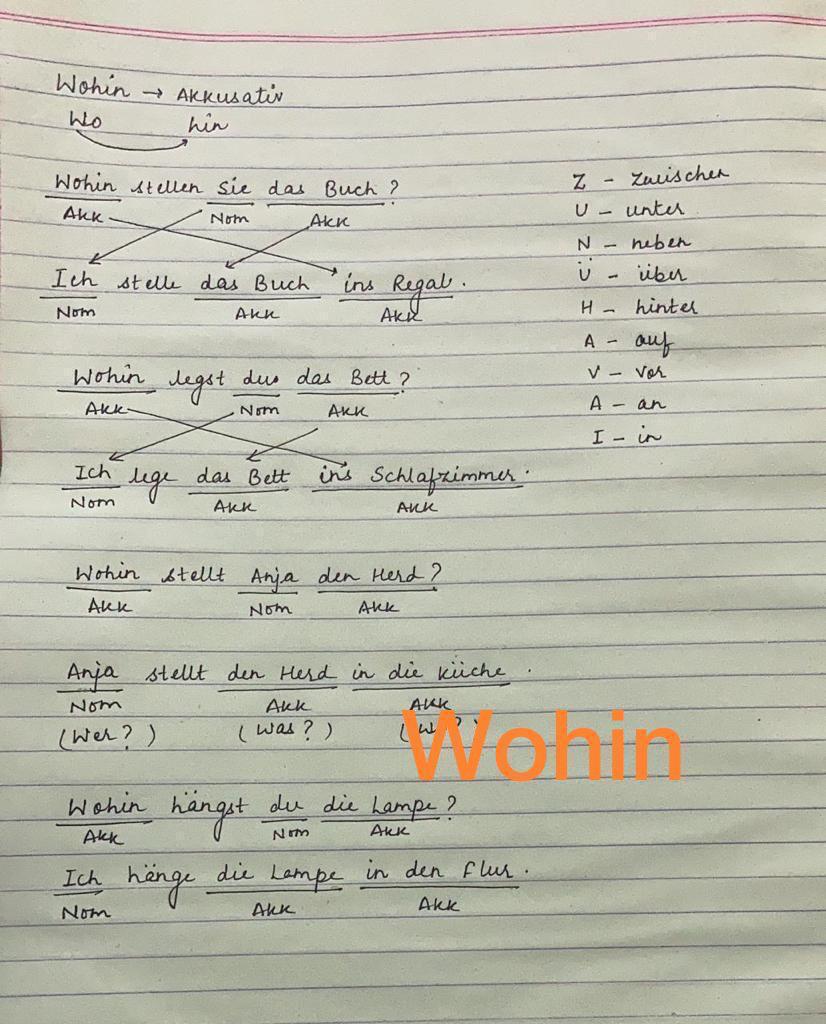 Wohin → AKKUSATIV
Wo hin
Wohin stellen Sie das Buch?
Akk Nom Akk
Ich stelle das Buch ins Regal.
Nom Akk Akk
Wohin legst du das Bett?
Akk Nom Akk
Ich lege das Bett ins Schlafzimmer.
Nom Akk Akk
Wohin stellt Anja den Herd?
Akk Nom Akk
Anja stellt den Herd in die Küche.
Nom Akk Akk
(Wer?) (Was?)
Wohin
Wohin hängst du die Lampe?
Akk Nom Akk
Ich hänge die Lampe in den Flur.
Nom Akk Akk
Z - Zwischen
U - unter
N - neben
Ü - über
H - hinter
A - auf
V - vor
A - an
I - in